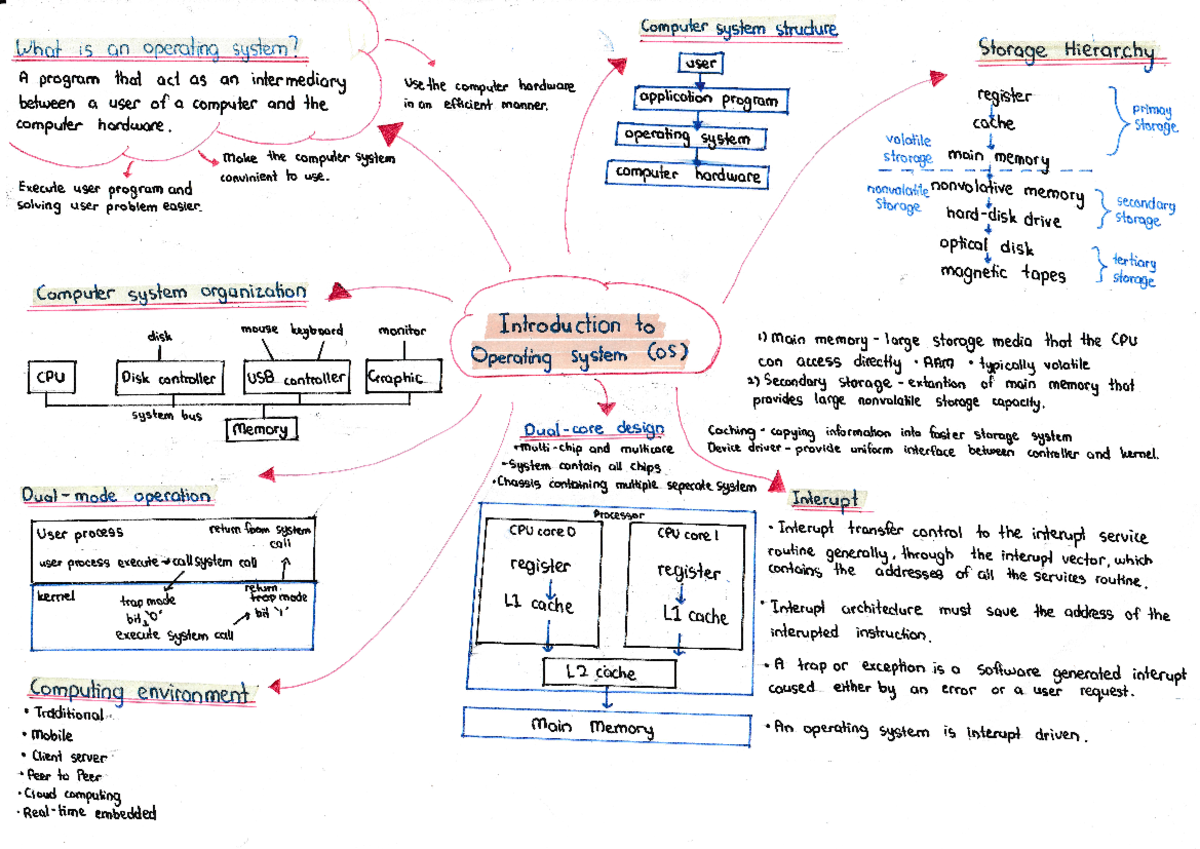 What is an operating system?
A program that act as an intermediary
between a user of a computer and the
computer hardware.
Use the computer hardware
in an efficient manner.
Make the computer system
convinient to use.
Execute user program and
solving user problem easier.
Computer system structure
user
application program
operating system
computer hardware
Storage Hierarchy
register
cache
main memory
nonvolative memory
hard-disk drive
optical disk
magnetic tapes
primay
storage
volatile
strorage
nonvolatile
Storage
secondary
storage
tertiary
storage
Computer system organization
disk
mouse keyboard
monitor
CPU
Disk controller
USB controller
Graphic
system bus
Memory
Introduction to
Operating System (OS)
1) Main memory - large storage media that the CPU
can access directly • RAM • typically volatile
2) Secondary storage - extantion of main memory that
provides large nonvolatile storage capacity.
Caching - copying information into faster storage system
Device driver - provide uniform interface between controller and kernel.
Dual-core design
•Multi-chip and multicore
•System contain all chips
•Chassis containing multiple seperate system
Processor
CPU core 0
register
L1 cache
CPU core 1
register
L1 cache
L2 cache
Main Memory
Dual-mode operation
User process
return from system
call
user process execute → call system call
kernel
trap mode
bit '0'
return
trap mode
bit '1'
execute system call
Interupt
• Interupt transfer control to the interupt service
routine generally, through the interupt vector, which
contains the addresses of all the services routine.
• Interupt architecture must save the address of the
interupted instruction.
• A trap or exception is a software generated interupt
caused either by an error or a user request.
• An operating system is interupt driven.
Computing environment
• Traditional
• Mobile
• Client server
• Peer to Peer
• Cloud computing
• Real-time embedded